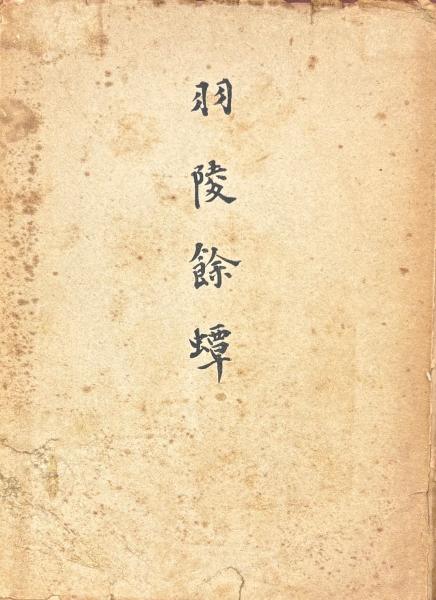 羽陵餘蟫